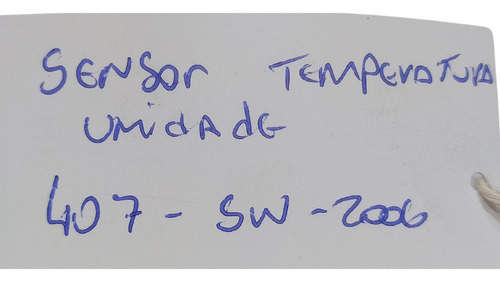 SENSOR TEMPERATURA
UMIDADE
407 - SW - 2006